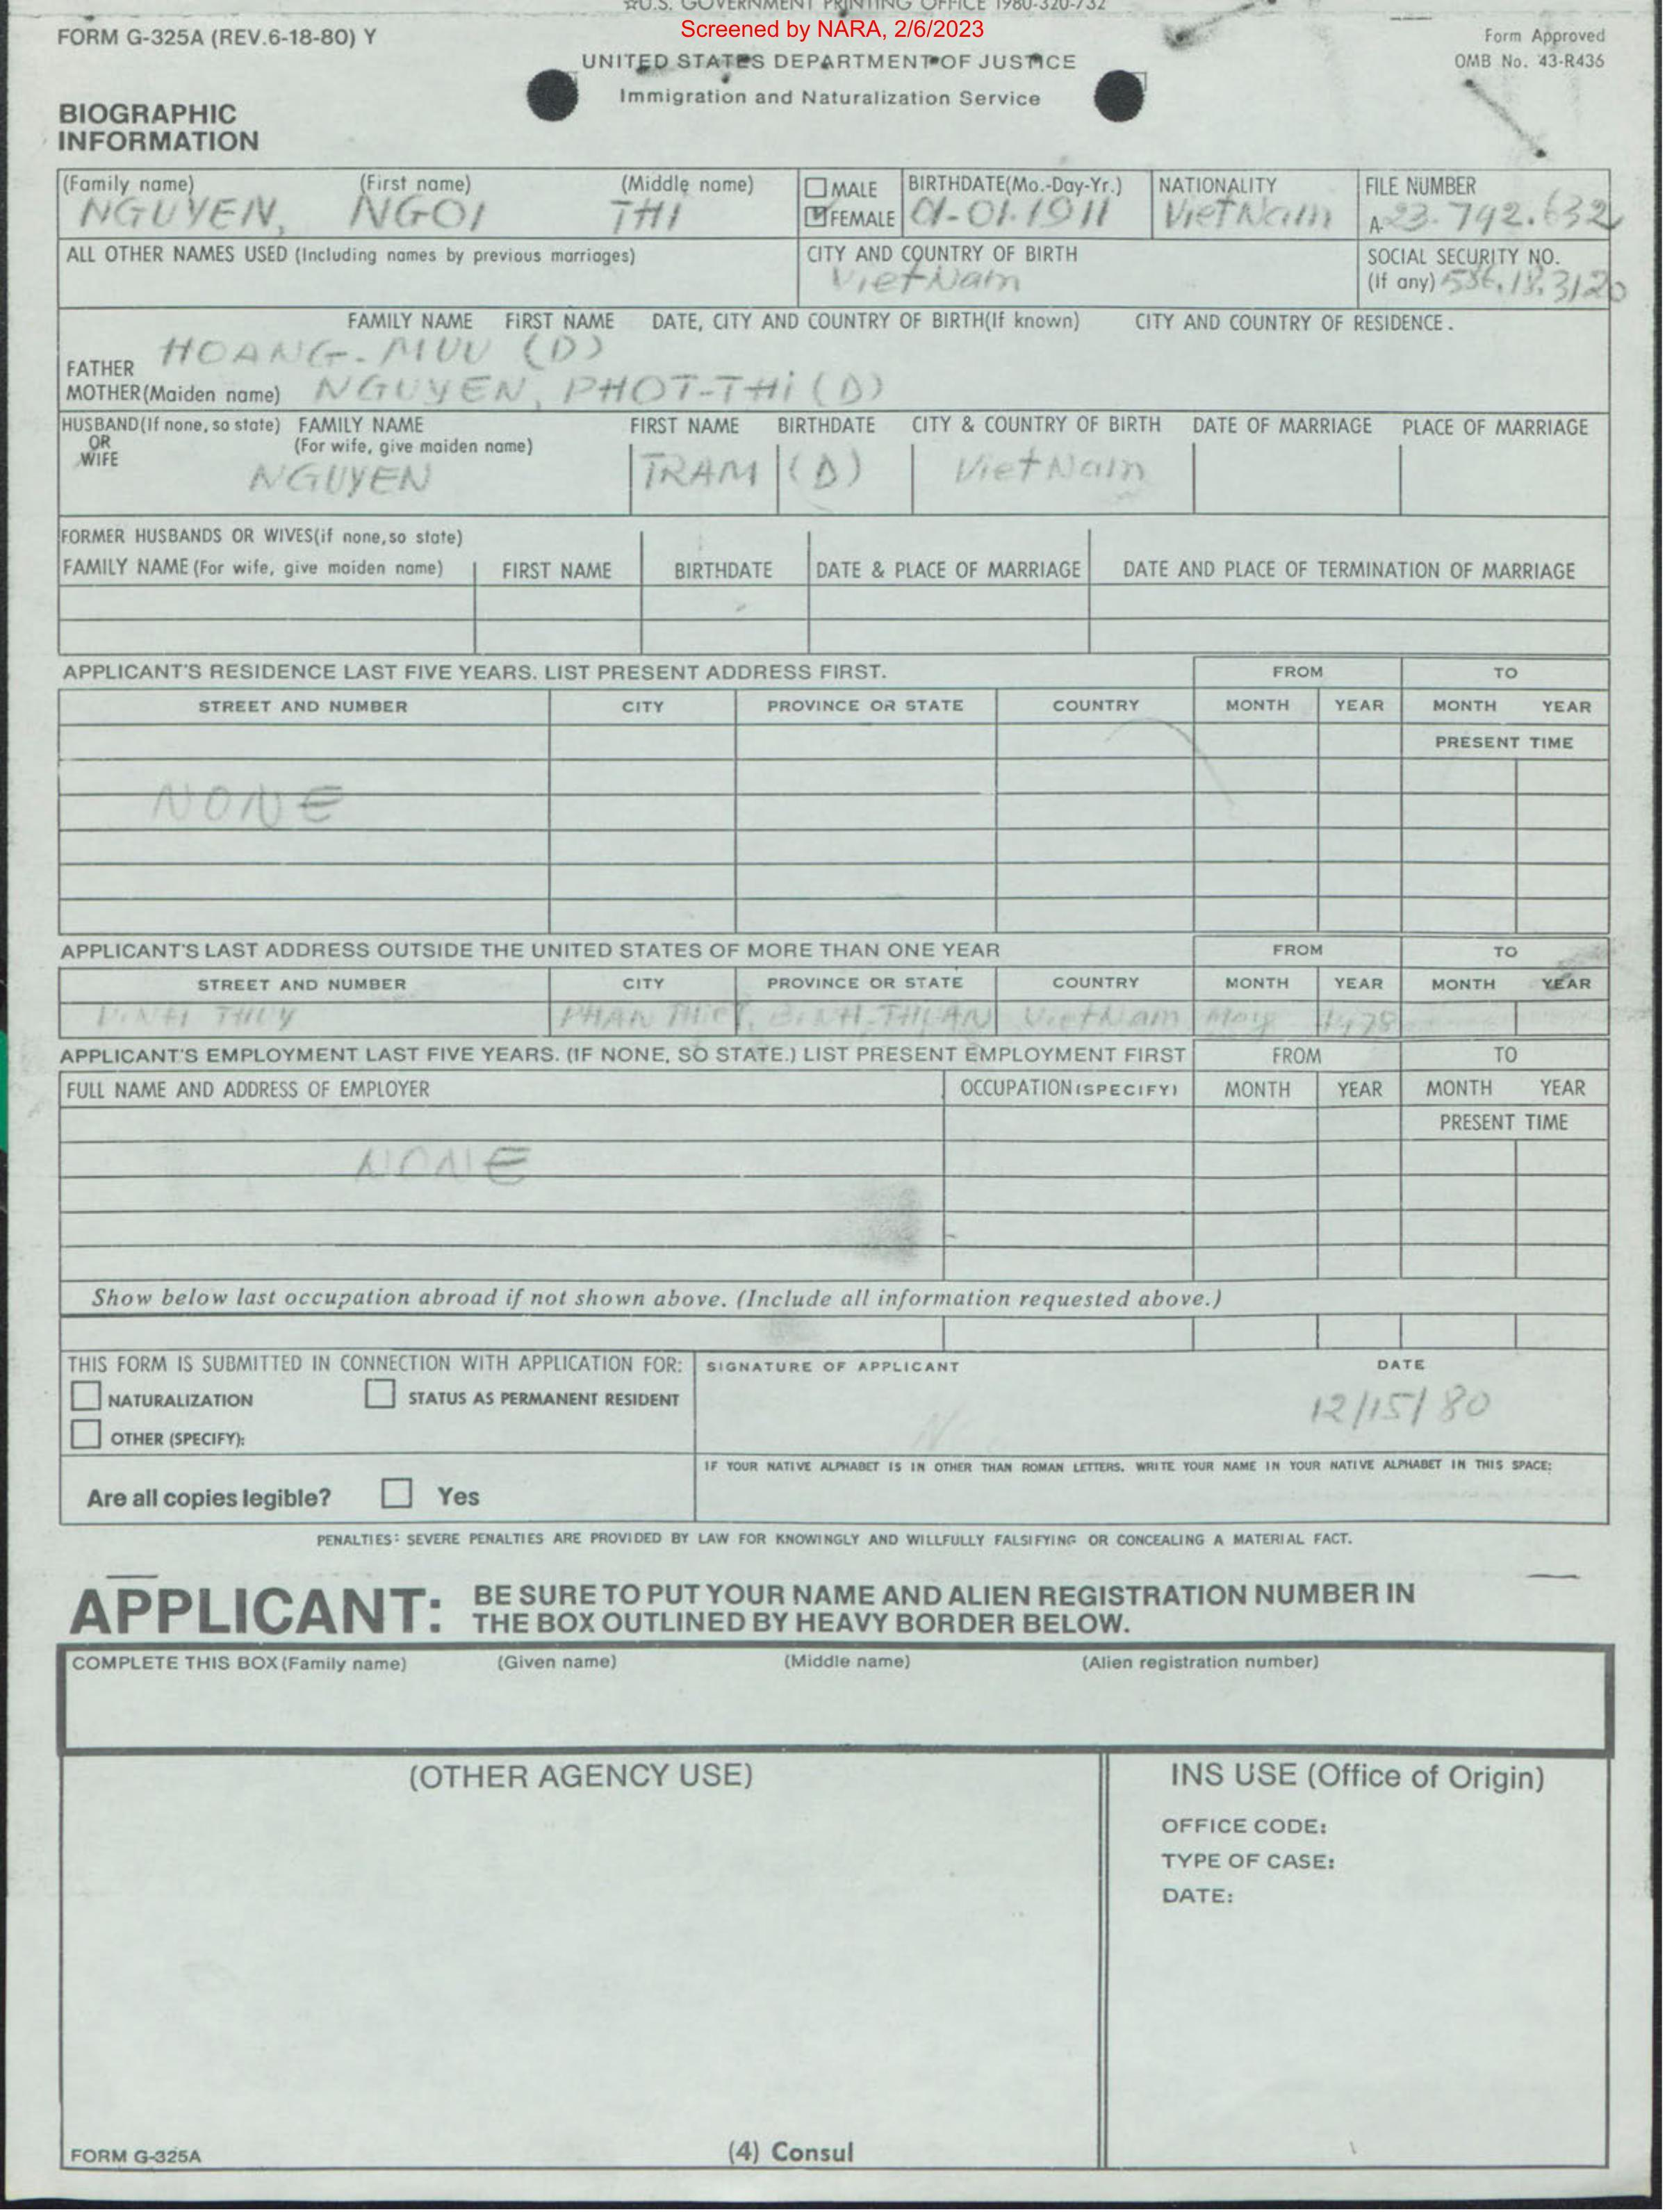 ☆U.S. GOVERNMENT PRINTING OFFICE 1980-320-732
Screened by NARA, 2/6/2023
FORM G-325A (REV.6-18-80) Y
Form Approved
OMB No. 43-R436
UNITED STATES DEPARTMENT OF JUSTICE
Immigration and Naturalization Service
BIOGRAPHIC
INFORMATION
(Family name) (First name) (Middle name) MALE BIRTHDATE(Mo.-Day-Yr.) NATIONALITY FILE NUMBER
NGUYEN, NGOI THI FEMALE 01-01-1911 VietNam A-23.792.632
ALL OTHER NAMES USED (Including names by previous marriages) CITY AND COUNTRY OF BIRTH SOCIAL SECURITY NO.
VietNam (If any) 586.18.3120
FAMILY NAME FIRST NAME DATE, CITY AND COUNTRY OF BIRTH(If known) CITY AND COUNTRY OF RESIDENCE.
FATHER HOANG-MUU (D)
MOTHER(Maiden name) NGUYEN, PHOT-THi (D)
HUSBAND(If none, so state) FAMILY NAME FIRST NAME BIRTHDATE CITY & COUNTRY OF BIRTH DATE OF MARRIAGE PLACE OF MARRIAGE
OR (For wife, give maiden name)
WIFE
NGUYEN TRAM (D) VietNam
FORMER HUSBANDS OR WIVES(if none, so state)
FAMILY NAME (For wife, give maiden name) FIRST NAME BIRTHDATE DATE & PLACE OF MARRIAGE DATE AND PLACE OF TERMINATION OF MARRIAGE
APPLICANT'S RESIDENCE LAST FIVE YEARS. LIST PRESENT ADDRESS FIRST. FROM TO
STREET AND NUMBER CITY PROVINCE OR STATE COUNTRY MONTH YEAR MONTH YEAR
PRESENT TIME
NONE
APPLICANT'S LAST ADDRESS OUTSIDE THE UNITED STATES OF MORE THAN ONE YEAR FROM TO
STREET AND NUMBER CITY PROVINCE OR STATE COUNTRY MONTH YEAR MONTH YEAR
VINH THUY PHAN THIET, BINH-THUAN VietNam May 1978
APPLICANT'S EMPLOYMENT LAST FIVE YEARS. (IF NONE, SO STATE.) LIST PRESENT EMPLOYMENT FIRST FROM TO
FULL NAME AND ADDRESS OF EMPLOYER OCCUPATION (SPECIFY) MONTH YEAR MONTH YEAR
PRESENT TIME
NONE
Show below last occupation abroad if not shown above. (Include all information requested above.)
THIS FORM IS SUBMITTED IN CONNECTION WITH APPLICATION FOR: SIGNATURE OF APPLICANT DATE
NATURALIZATION STATUS AS PERMANENT RESIDENT 12/15/80
OTHER (SPECIFY):
IF YOUR NATIVE ALPHABET IS IN OTHER THAN ROMAN LETTERS, WRITE YOUR NAME IN YOUR NATIVE ALPHABET IN THIS SPACE:
Are all copies legible? Yes
PENALTIES: SEVERE PENALTIES ARE PROVIDED BY LAW FOR KNOWINGLY AND WILLFULLY FALSIFYING OR CONCEALING A MATERIAL FACT.
APPLICANT: BE SURE TO PUT YOUR NAME AND ALIEN REGISTRATION NUMBER IN
THE BOX OUTLINED BY HEAVY BORDER BELOW.
COMPLETE THIS BOX (Family name) (Given name) (Middle name) (Alien registration number)
(OTHER AGENCY USE) INS USE (Office of Origin)
OFFICE CODE:
TYPE OF CASE:
DATE:
FORM G-325A (4) Consul